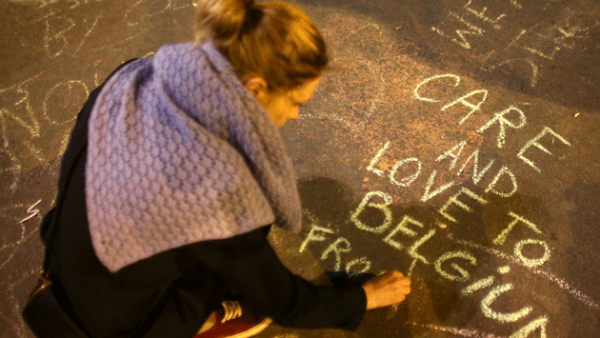 WE
NO
CARE
AND
LOVE TO
BELGIUM
FRO